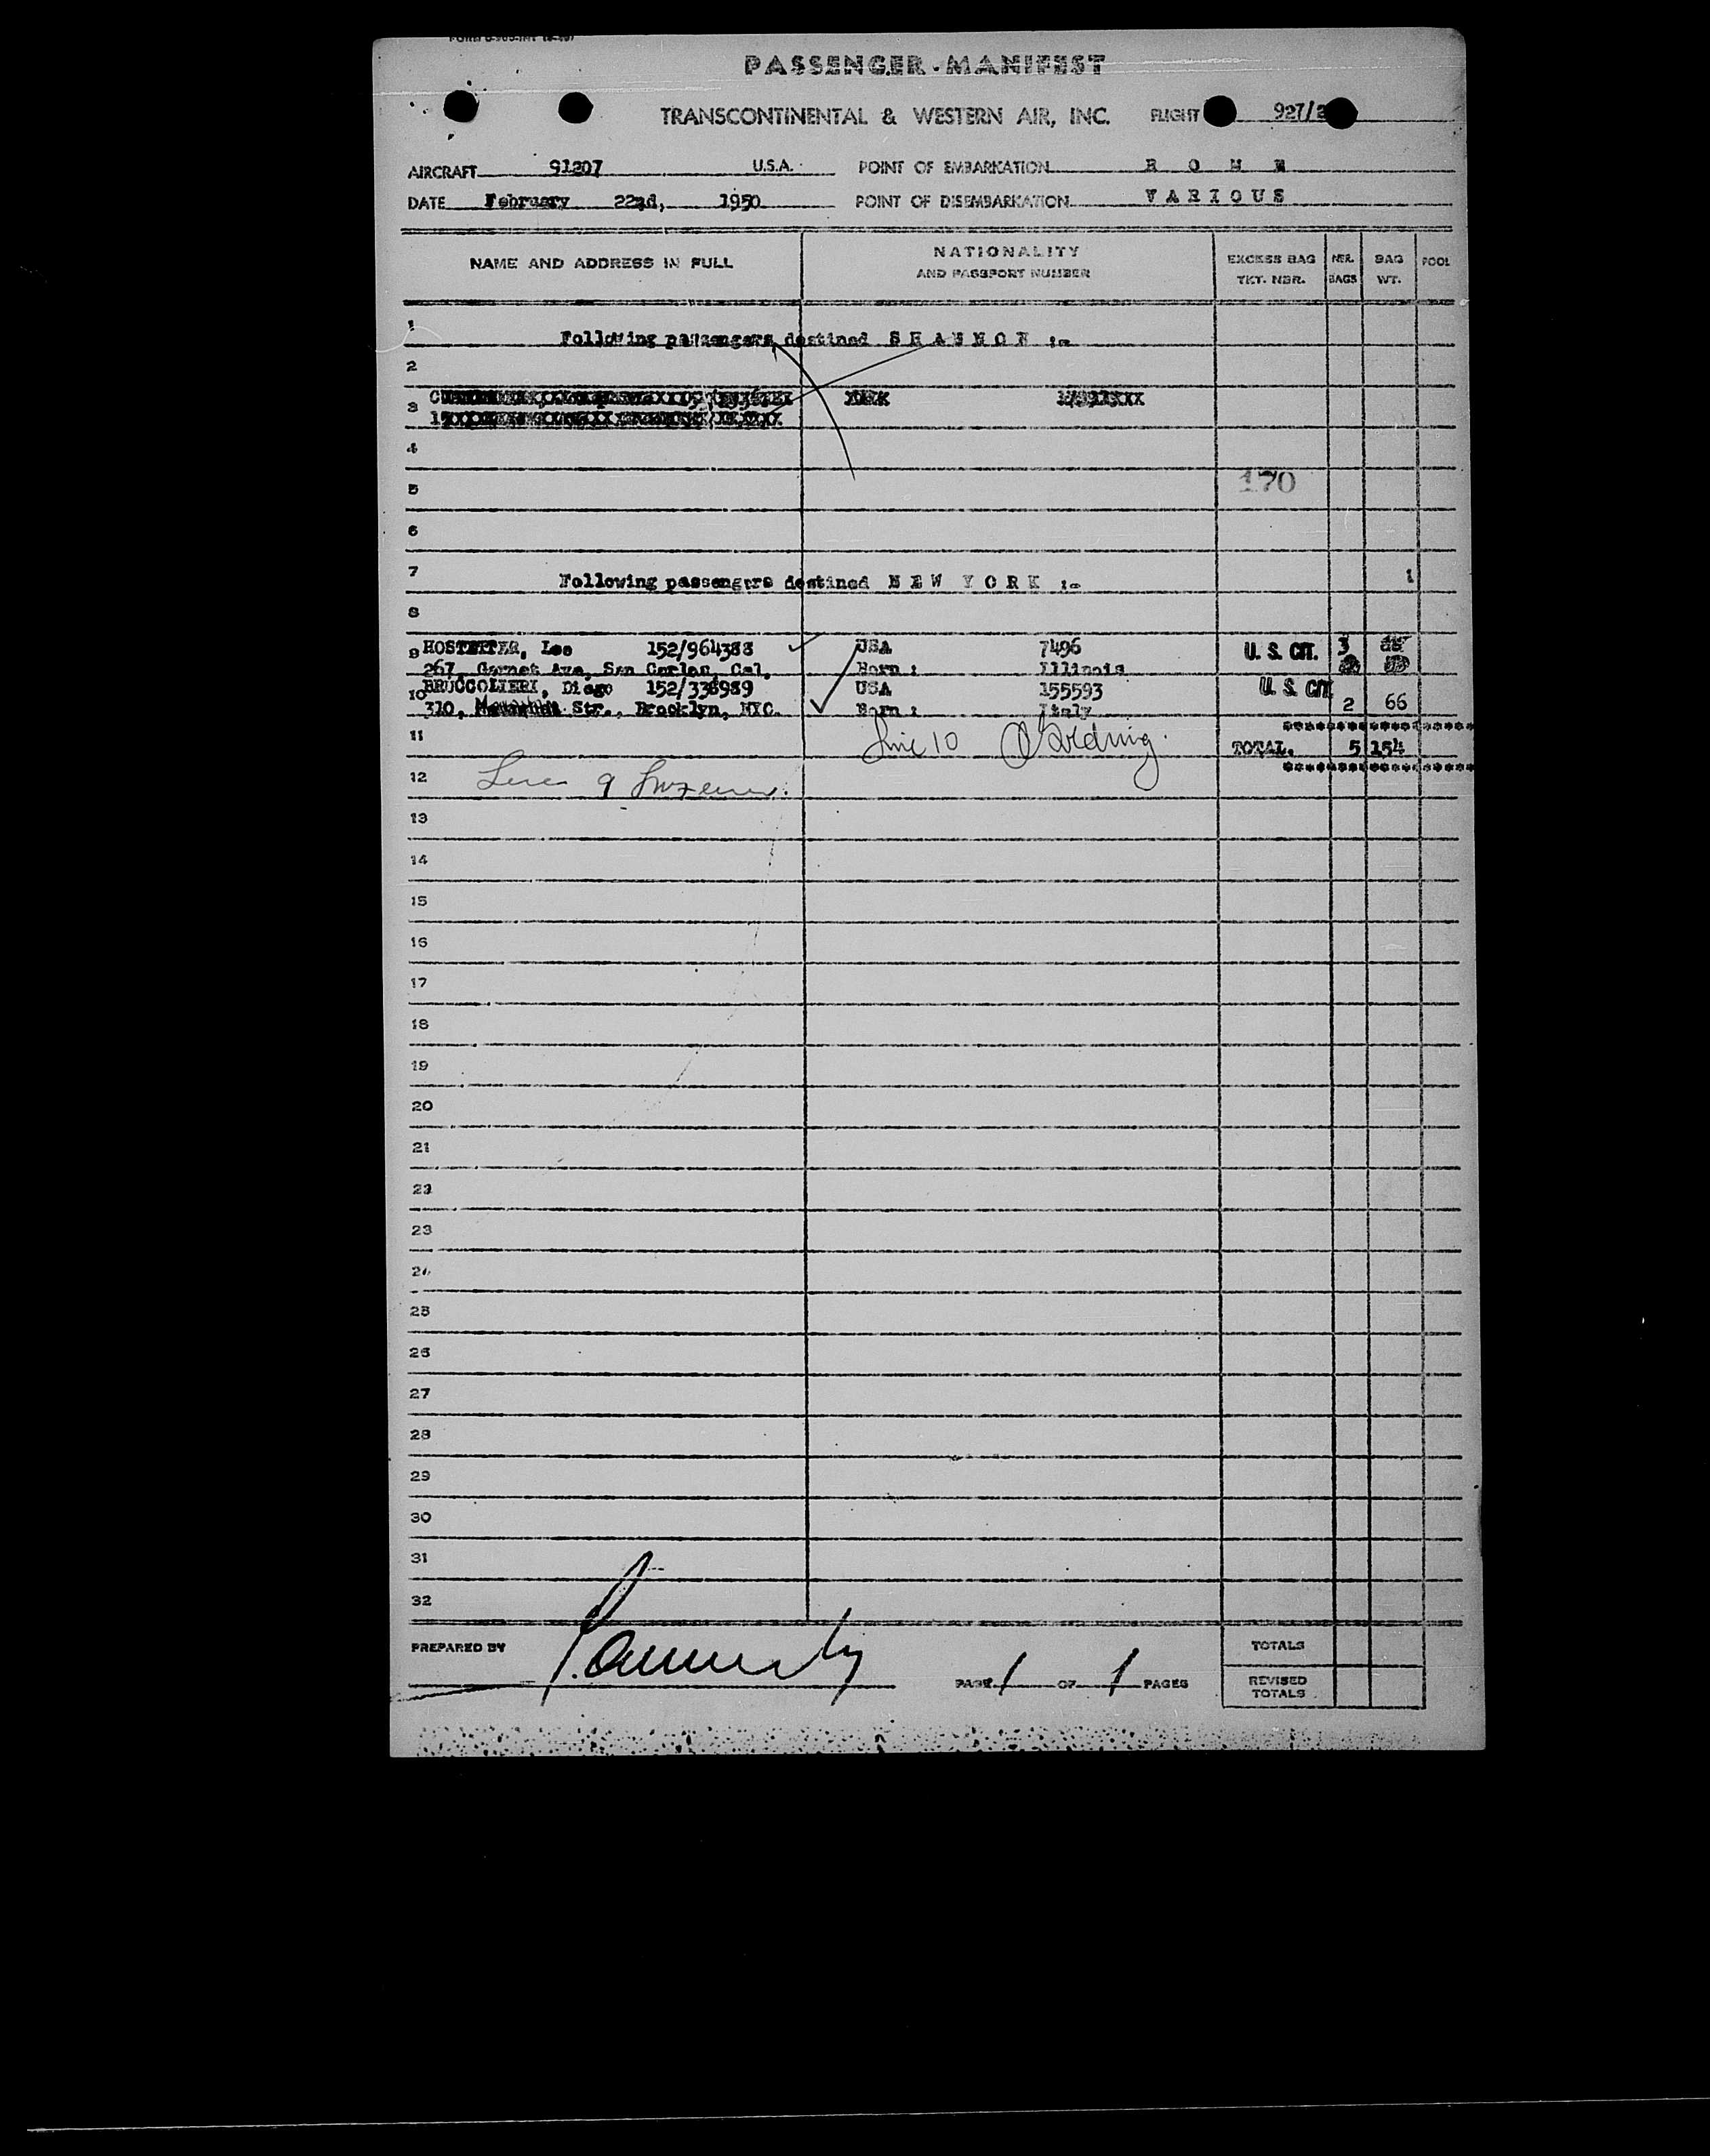 PASSENGER MANIFEST
TRANSCONTINENTAL & WESTERN AIR, INC. FLIGHT 927/2
AIRCRAFT 91207 U.S.A. POINT OF EMBARKATION R O M E
DATE February 22nd, 1950 POINT OF DISEMBARKATION V A R I O U S
NAME AND ADDRESS IN FULL NATIONALITY AND PASSPORT NUMBER EXCESS BAG TKT. NBR. NBR. BAGS BAG WT. POOL
1 Following passengers destined S H A N N O N :-
2
3
4
5 170
6
7 Following passengers destined N E W Y O R K :-
8
9 HOSTETTER, Lee 152/964388 USA 7496 U. S. CIT. 3
267, Garnet Ave, San Carlos, Cal. Born : Illinois
10 BRUCCOLIERI, Diego 152/338989 USA 155593 U. S. CIT
310, Str., Brooklyn, NYC. Born : Italy 2 66
11 Line 10 TOTAL. 5 154
12 Line 9
13
14
15
16
17
18
19
20
21
22
23
24
25
26
27
28
29
30
31
32
PREPARED BY PAGE 1 OF 1 PAGES
TOTALS
REVISED TOTALS